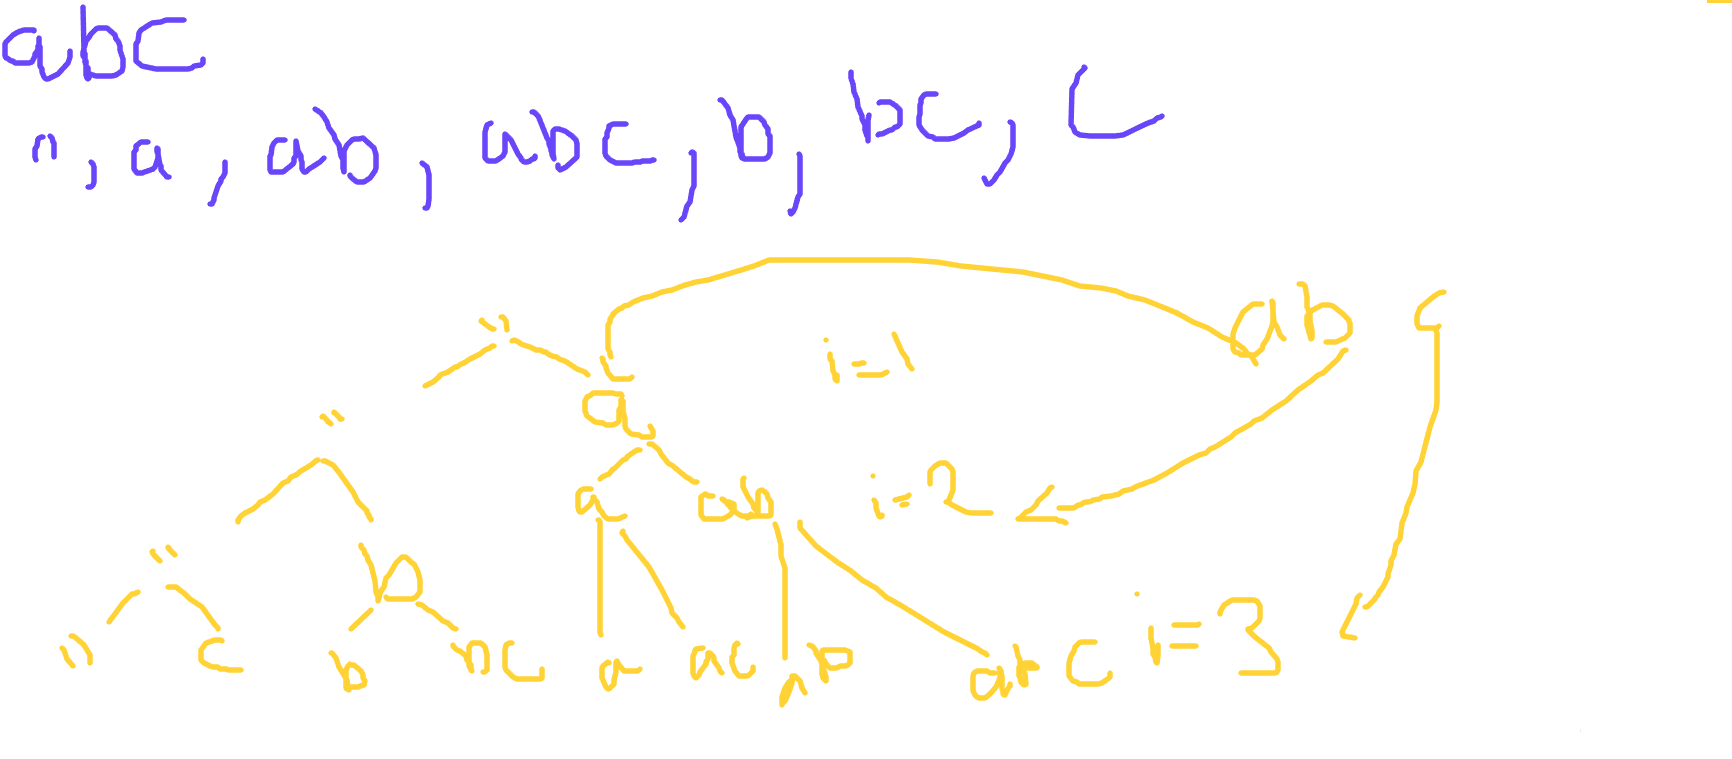 abc
", a, ab, abc, b, bc, c
" a i=1 ab c
" a ab i=2
" b
" c b bc a ac ab abc i=3